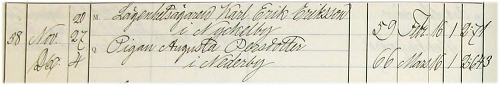 20 " Lägenhetsägaren Karl Erik Eriksson
58 Nov. 27 i Nyckelby 59 Febr. 16 1 271
Dec. 4 " Pigan Augusta Persdotter
i Näderby 66 Mars 16 1 2643